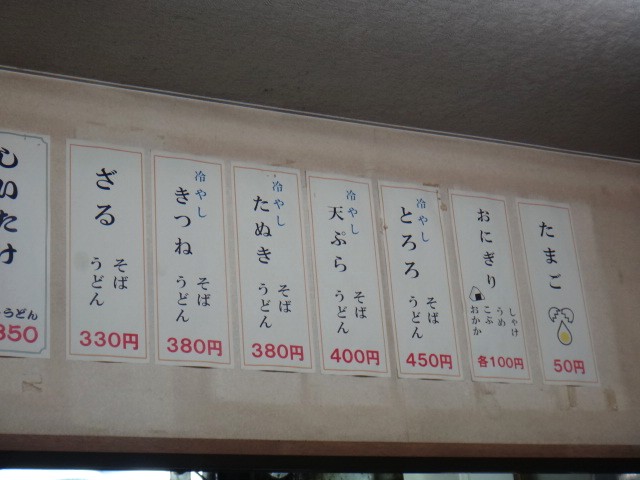 しいたけ
うどん
350
ざる
そば
うどん
330円
冷やし
きつね
そば
うどん
380円
冷やし
たぬき
そば
うどん
380円
冷やし
天ぷら
そば
うどん
400円
冷やし
とろろ
そば
うどん
450円
おにぎり
しゃけ
うめ
こぶ
おかか
各100円
たまご
50円